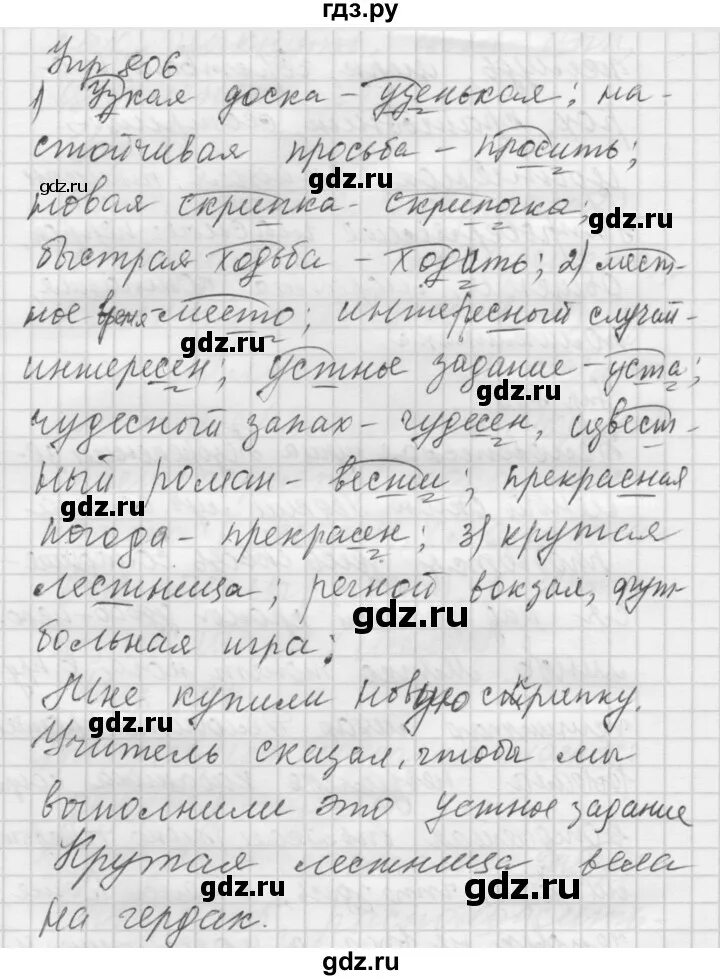 гдз.ру
Упр 806
1) Узкая доска - узенькая; на-
стойчивая просьба - просить;
gdz.ru gdz.ru
новая скрипка - скрипочка;
быстрая ходьба - ходить; 2) мест-
ное время место; интересный случай -
gdz.ru
интересен; устное задание - уста;
чудесный запах - чудесен, извест-
ный роман - вести; прекрасная
gdz.ru
погода - прекрасен; 3) крутая
лестница; речной вокзал, фут-
gdz.ru
больная игра;
Мне купили новую скрипку.
gdz.ru
Учитель сказал, чтобы мы
выполнили это устное задание
Крутая лестница вела
gdz.ru gdz.ru
на чердак.
gdz.ru